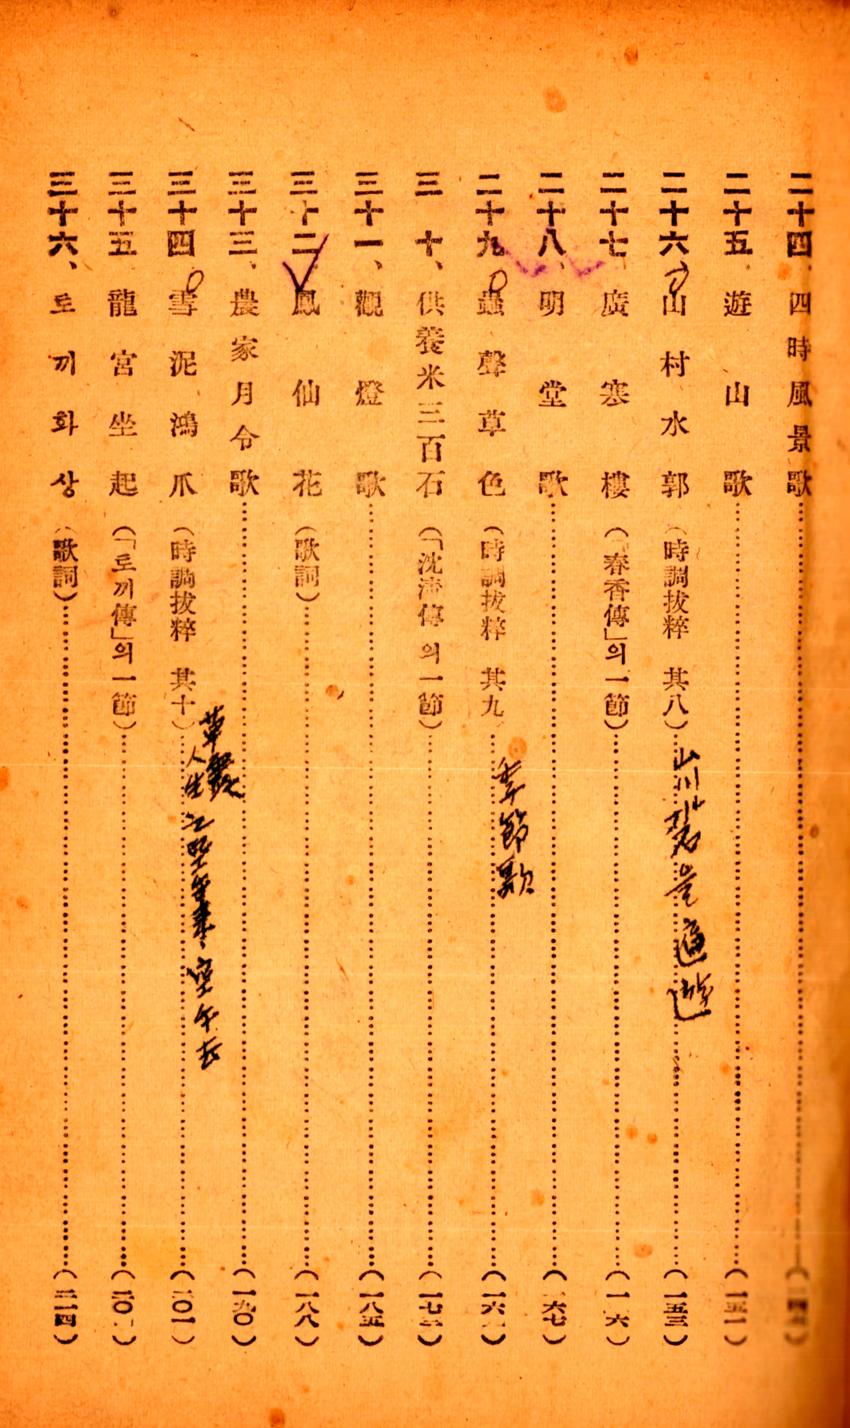 二十四、四時風景歌
二十五、遊山歌……(一五一)
二十六、山村水郭(時調拔粹 其八)……(一五三)
二十七、廣寒樓(「春香傳」의一節)
二十八、明堂歌……(一六七)
二十九、蟲聲草色(時調拔粹 其九)
三十、供養米三百石(「沈淸傳」의一節)
三十一、觀燈歌……(一八五)
三十二、鳳仙花(歌詞)……(一八八)
三十三、農家月令歌……(一九〇)
三十四、雪泥鴻爪(時調拔粹 其十)……(二〇一)
三十五、龍宮坐起(「토끼傳」의一節)
三十六、토끼화상(歌詞)……(二一四)
山川
季節歌
人生